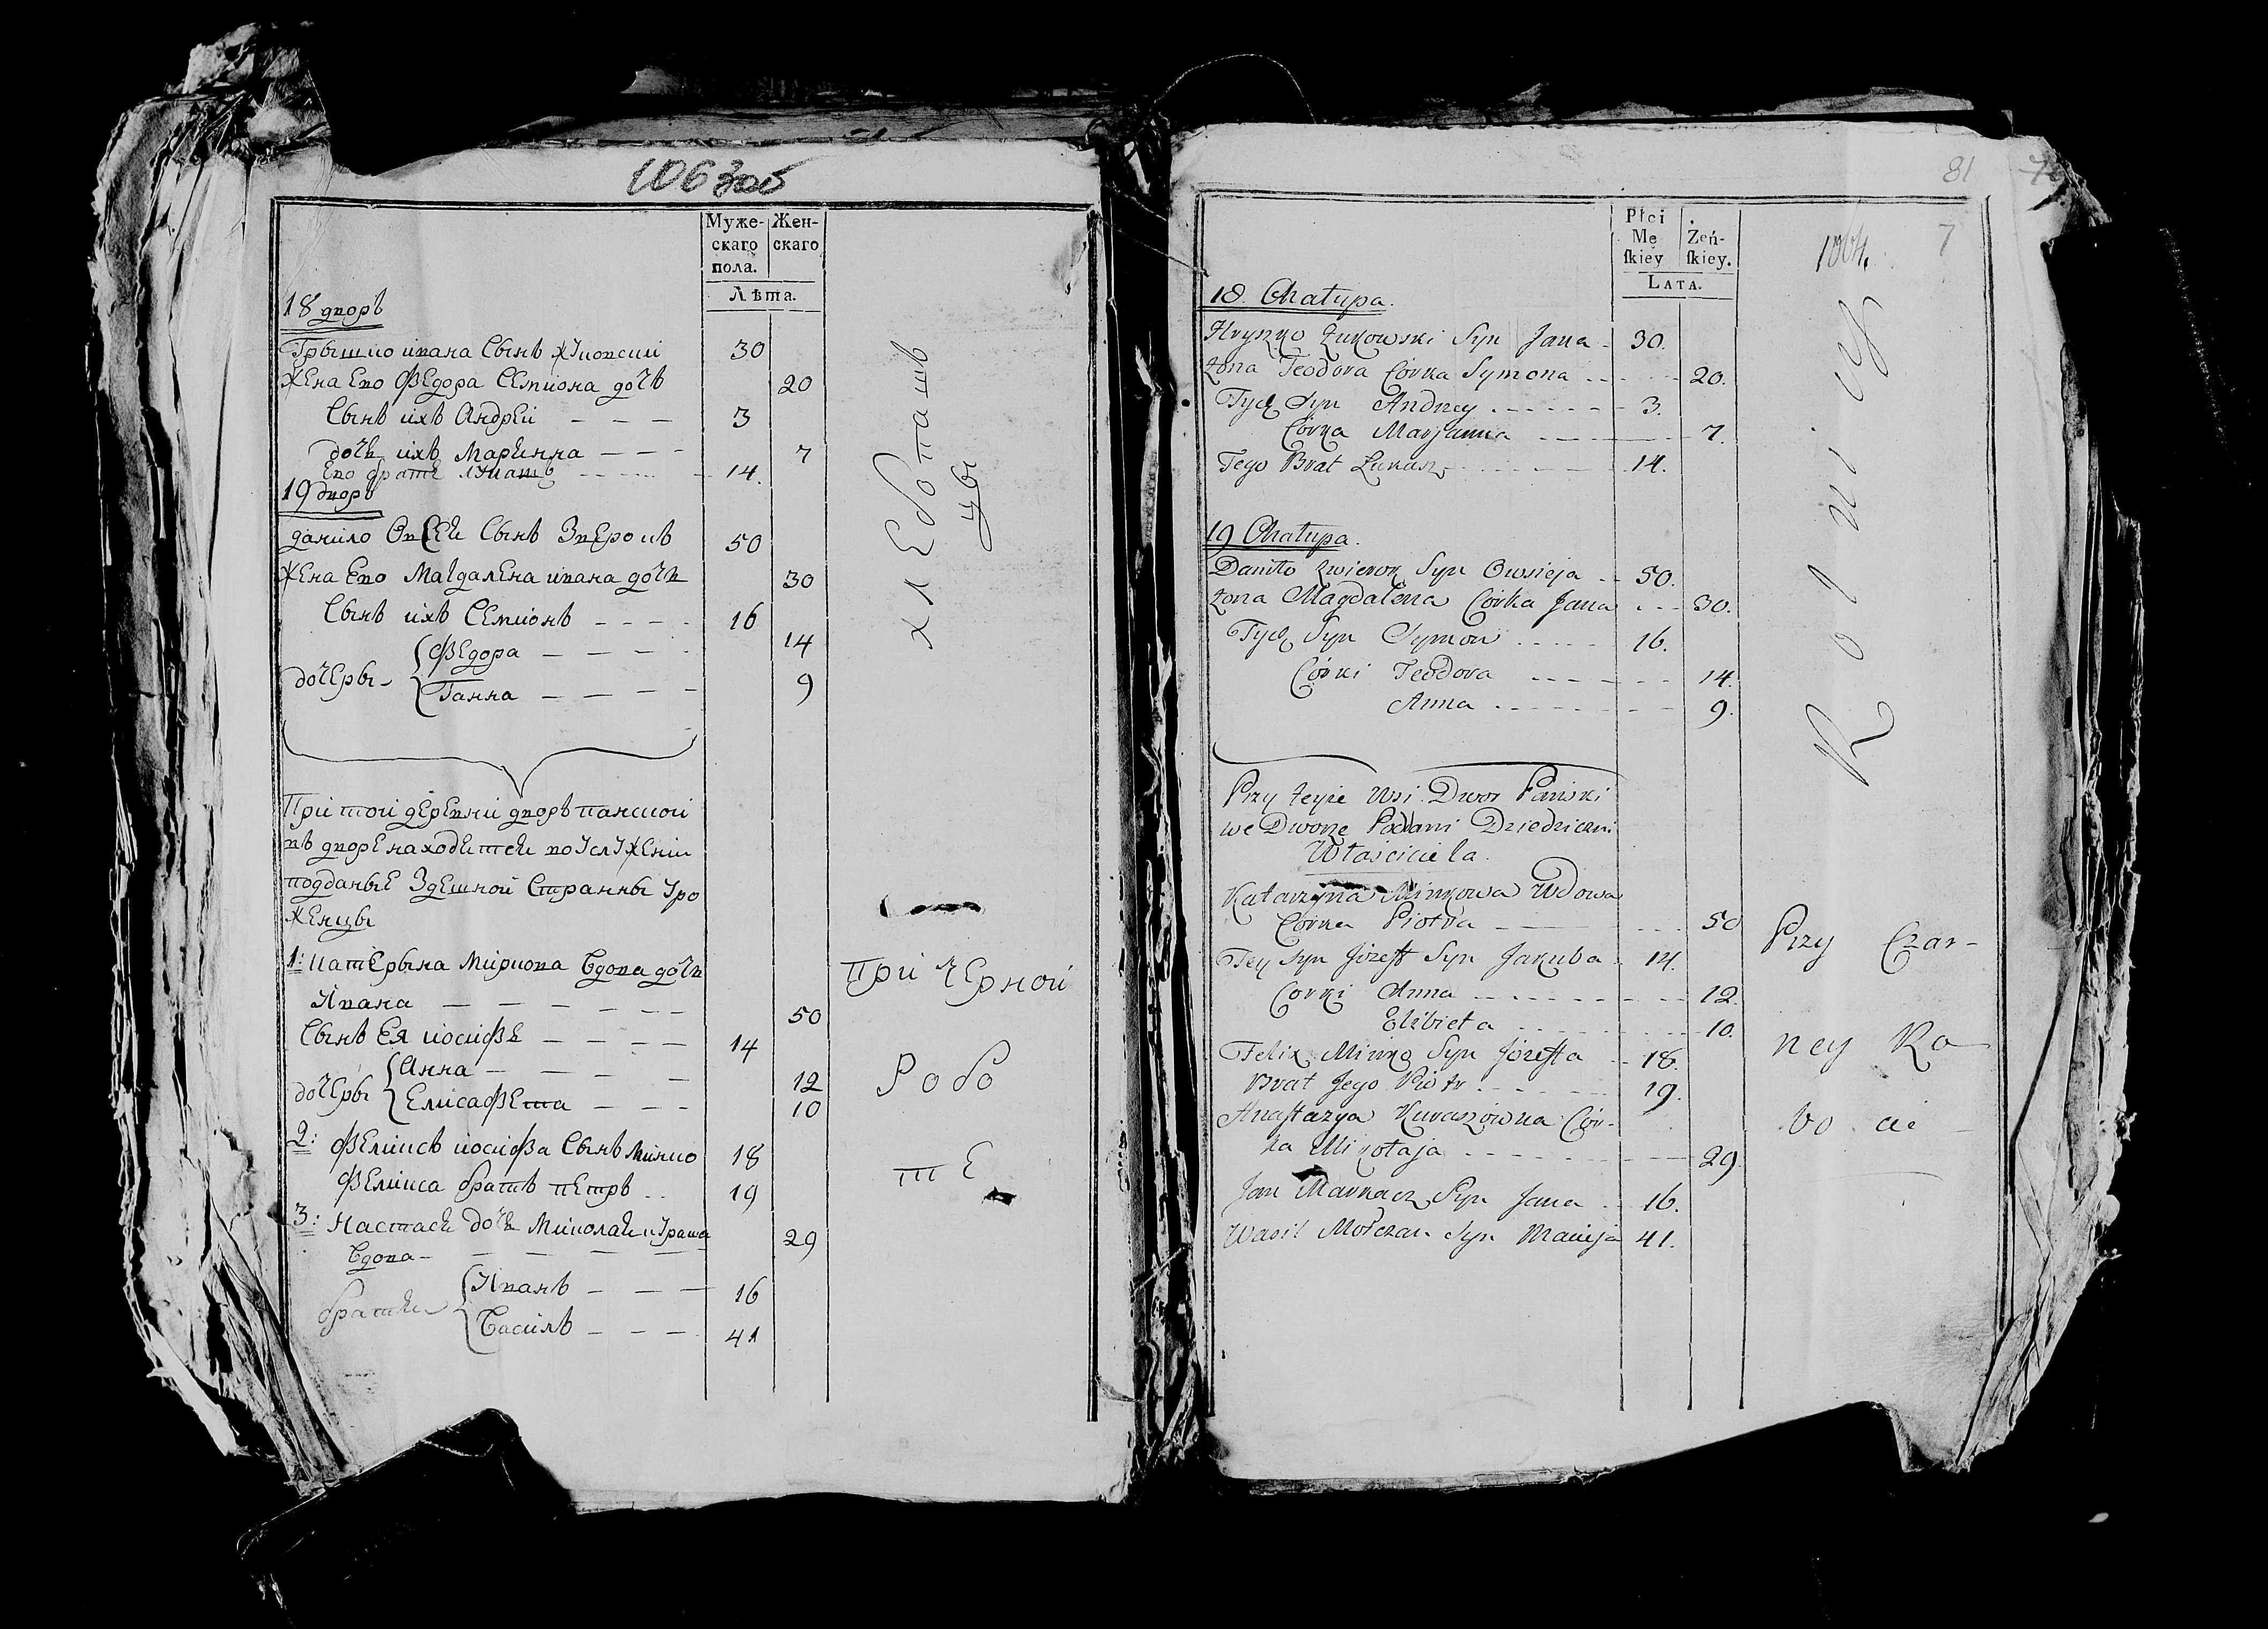 106 306
Муже-
скаго
пола.
Жен-
скаго
Лѣта.
18 дворъ
Грышко ивана Сынъ жуковски 30
жена Его Федора Семиона дочъ 20
Сынъ ихъ Андреи — — — 3
дочь ихъ Марьянна — — - 7
Его братъ лукашъ 14.
19 дворъ
данило Овсеи Сынъ Зверокъ 50
жена Его Магдалена ивана дочь 30
Сынъ ихъ Семионъ — — — - 16
дочеры Федора — — — - 14
Ганна — — — - 9
При тои деревни дворъ панскои
въ дворе находетсе во услужении
подданые Здешнои Странны уро
женцы
1: катерына Миркова Вдова дочь
Ивана — — — — — — 50
Сынъ Ея иосифъ — — — — 14
дочеры Анна — — — — 12
Елисафета — — - 10
2: Феликсъ иосифа Сынъ Минко 18
Феликса братъ петръ .. 19
3: Настасе дочь Миколаи кураша
Вдова — — — — — 29
братьи Иванъ — — — 16
Василь — — — 41
хлебопашъ
цы
при черной
Робо
те
81
7
1064.
Płci
Mę
skiey
Żeń-
skiey.
LATA.
18. Chatupa.
Hryszko Żukowski Syn Jana - 30.
Żona Teodora Córka Symona - - - - 20.
Tych Syn Andrzey - - - - - 3.
Córka Marjanna - - - - 7.
Tego Brat Łukasz - - - - - 14.
19 Chatupa.
Daniło Zwierok Syn Owsieja - - 50.
Żona Magdalena Córka Jana - - - 30.
Tych Syn Symon - - - - - 16.
Córki Teodora - - - - - - 14.
Anna - - - - - - - 9.
Przy teyże Wsi Dwor Pański
we Dworze Poddani Dziedziczni
Właściciela.
Katarzyna Minkowa Wdowa
Córka Piotra - - - - 50
Tey Syn Józeff Syn Jakuba - 14.
Corki Anna - - - - - - - 12.
Elżbieta - - - - - - 10.
Felix Minko Syn Józeffa - - 18.
Brat Jego Piotr - - - - - 19.
Anastazya Kuraszówna Cór-
ka Mikołaja - - - - - - 29.
Jan Markacz Syn Jana - - 16.
Wasil Mołczan Syn Macieja 41.
Rolnicy
Przy Czar-
ney Ro
bo cie